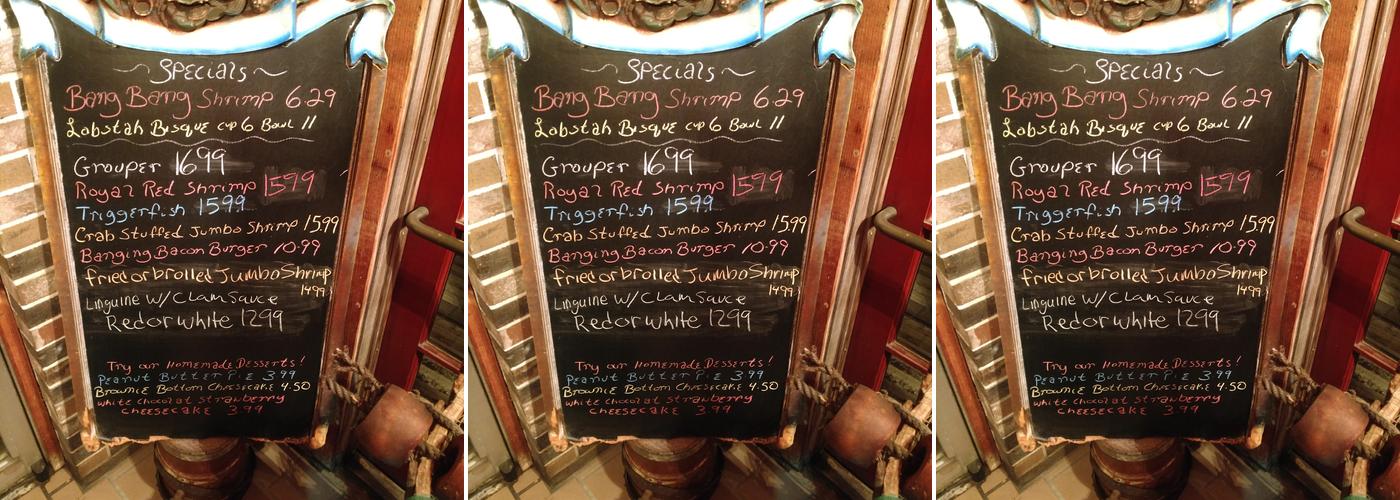 Specials
Bang Bang Shrimp 6.29
Lobstah Bisque cup 6 Bowl 11
Grouper 1699
Royal Red Shrimp 1599
Triggerfish 1599
Crab Stuffed Jumbo Shrimp 15.99
Banging Bacon Burger 10.99
fried or brolled Jumbo Shrimp
1499
Linguine W/Clam Sauce
Red or white 1299
Try our Homemade Desserts!
Peanut Butter Pie 3.99
Brownie Bottom Cheesecake 4.50
white chocolat strawberry
cheesecake 3.99
Specials
Bang Bang Shrimp 6.29
Lobstah Bisque cup 6 Bowl 11
Grouper 1699
Royal Red Shrimp 1599
Triggerfish 1599
Crab Stuffed Jumbo Shrimp 15.99
Banging Bacon Burger 10.99
fried or brolled Jumbo Shrimp
1499
Linguine W/Clam Sauce
Red or white 1299
Try our Homemade Desserts!
Peanut Butter Pie 3.99
Brownie Bottom Cheesecake 4.50
white chocolat strawberry
cheesecake 3.99
Specials
Bang Bang Shrimp 6.29
Lobstah Bisque cup 6 Bowl 11
Grouper 1699
Royal Red Shrimp 1599
Triggerfish 1599
Crab Stuffed Jumbo Shrimp 15.99
Banging Bacon Burger 10.99
fried or brolled Jumbo Shrimp
1499
Linguine W/Clam Sauce
Red or white 1299
Try our Homemade Desserts!
Peanut Butter Pie 3.99
Brownie Bottom Cheesecake 4.50
white chocolat strawberry
cheesecake 3.99